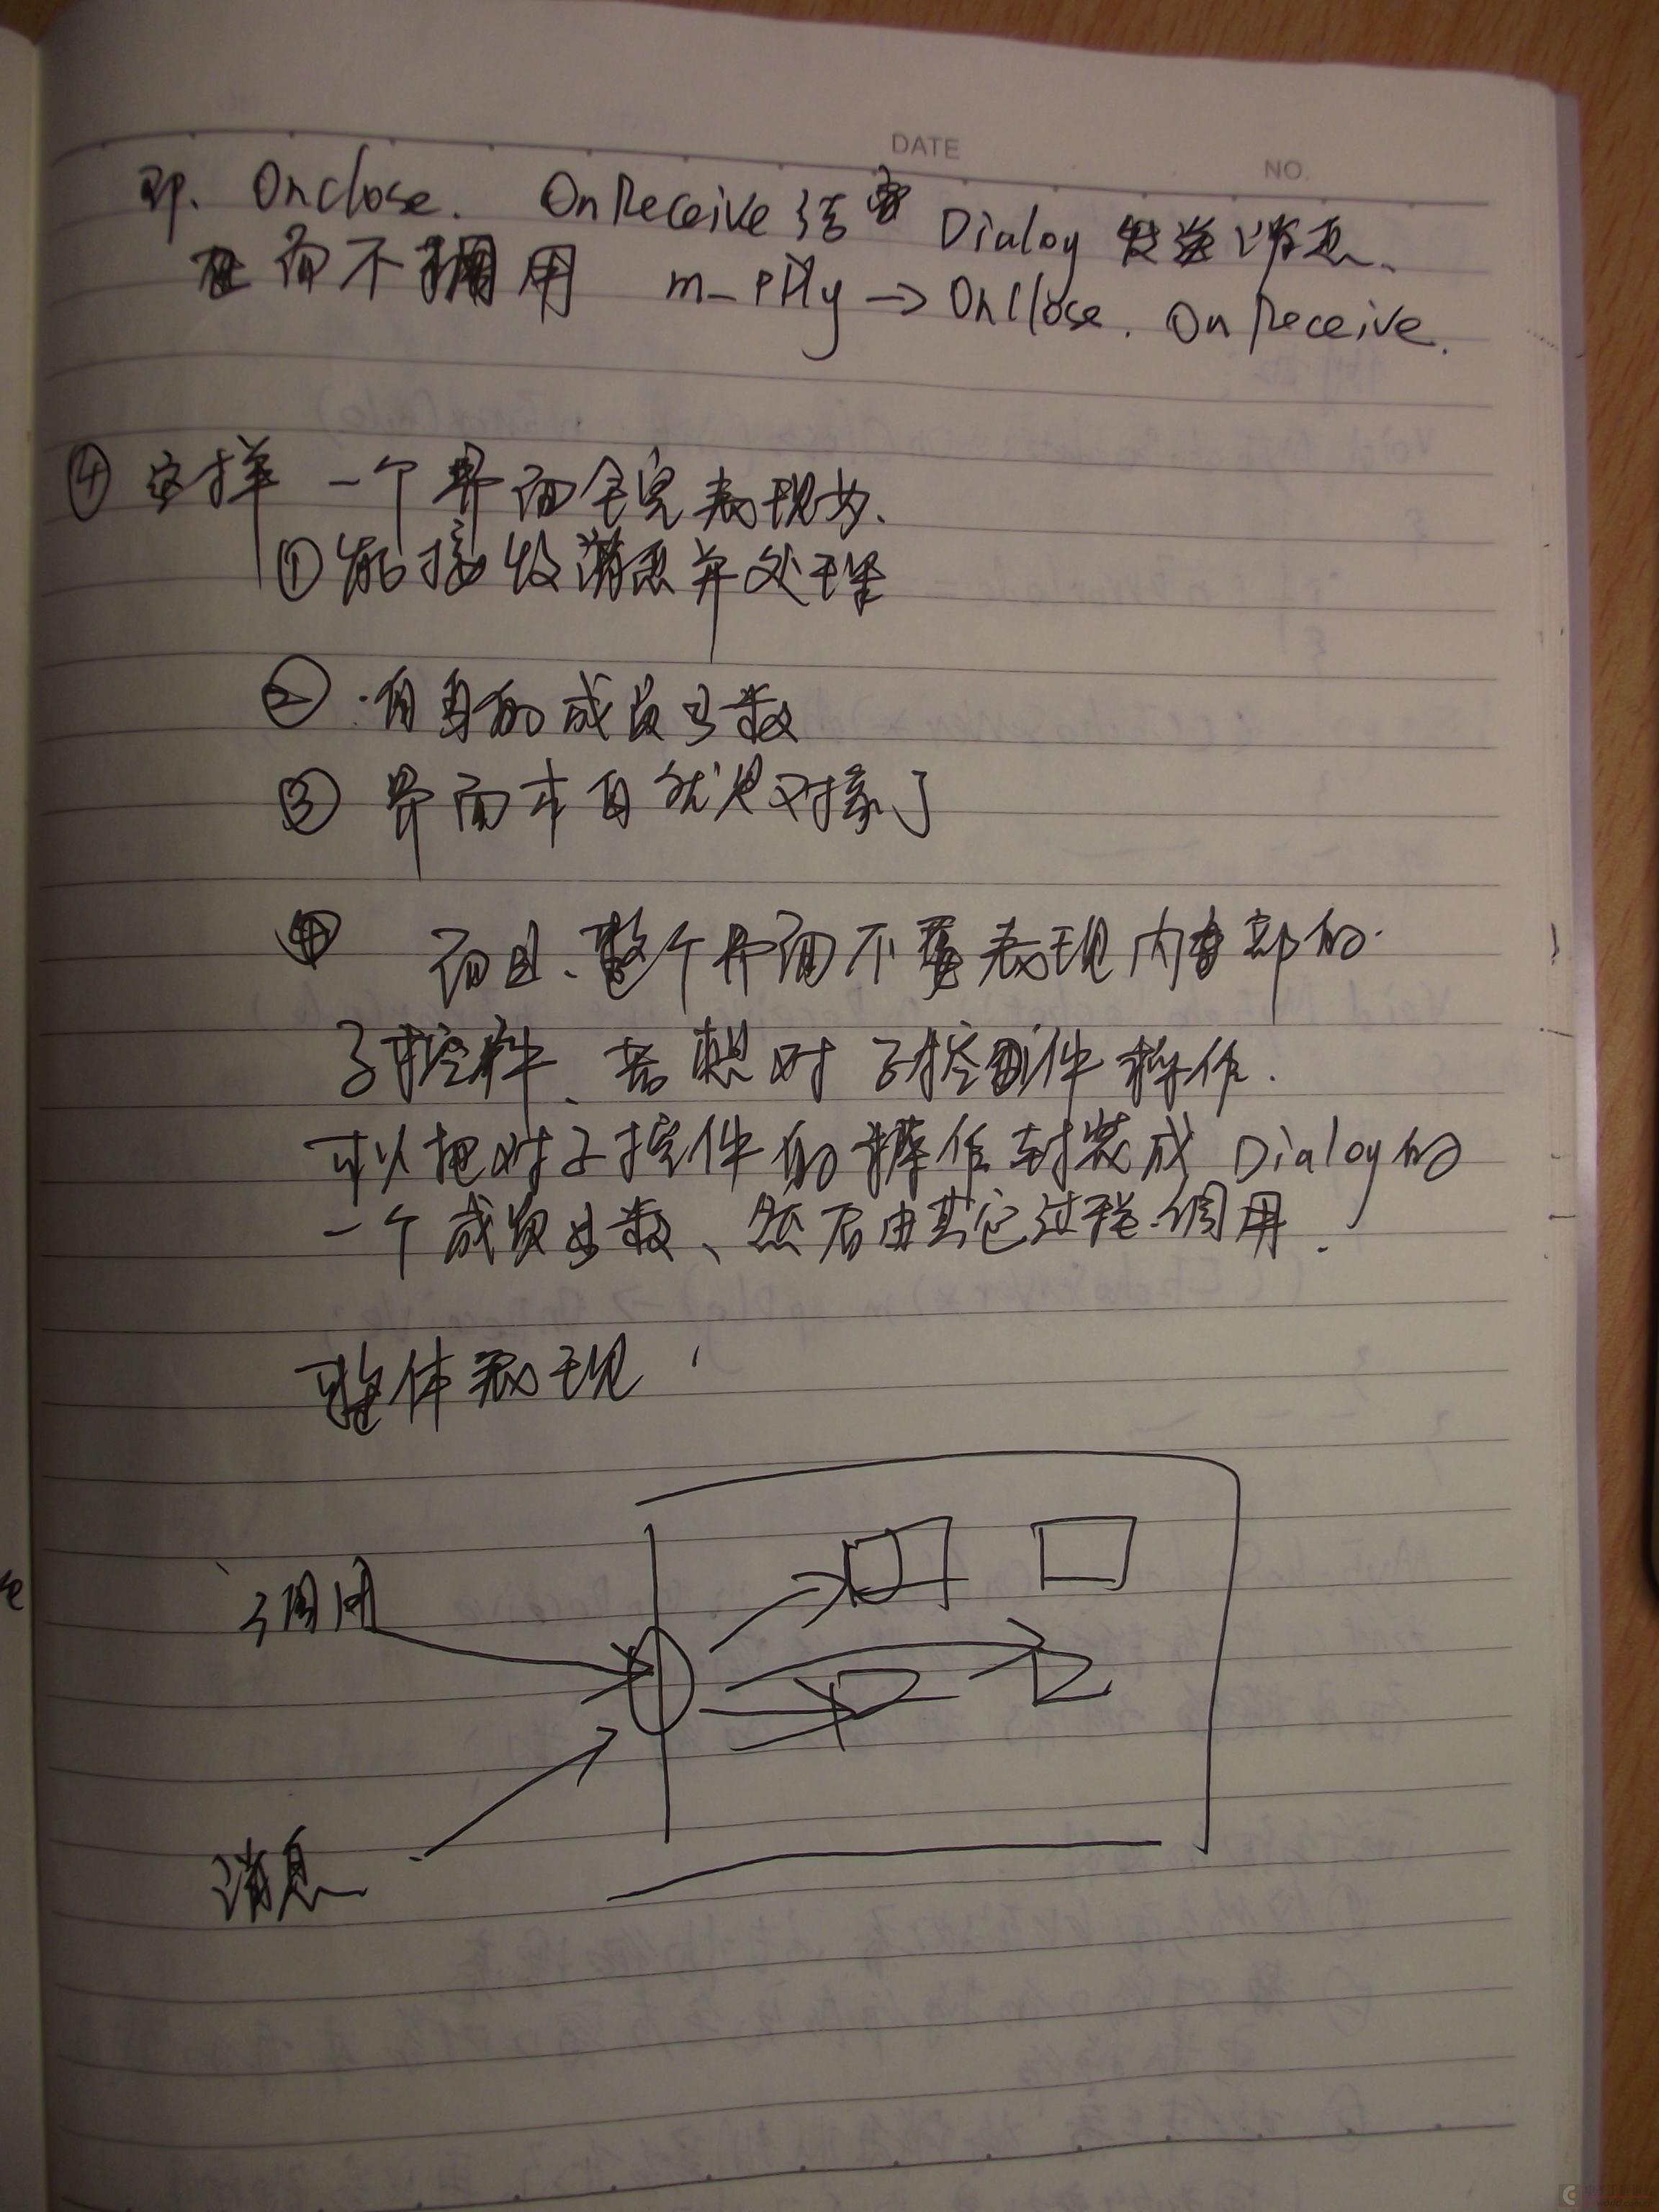 DATE
NO.
即. OnClose. OnReceive 给 Dialog 发送消息.
而不调用 m_pDlg -> OnClose. OnReceive.
④ 这样 一个界面全完表现为.
① 能接收消息并处理
② 自身的成员函数
③ 界面本身就是对象了
④ 而且、整个界面不要表现内部的
子控件、若想对子控件操作.
可以把对子控件的操作封装成 Dialog 的
一个成员函数、然后由其它过程调用.
整体表现
调用
消息